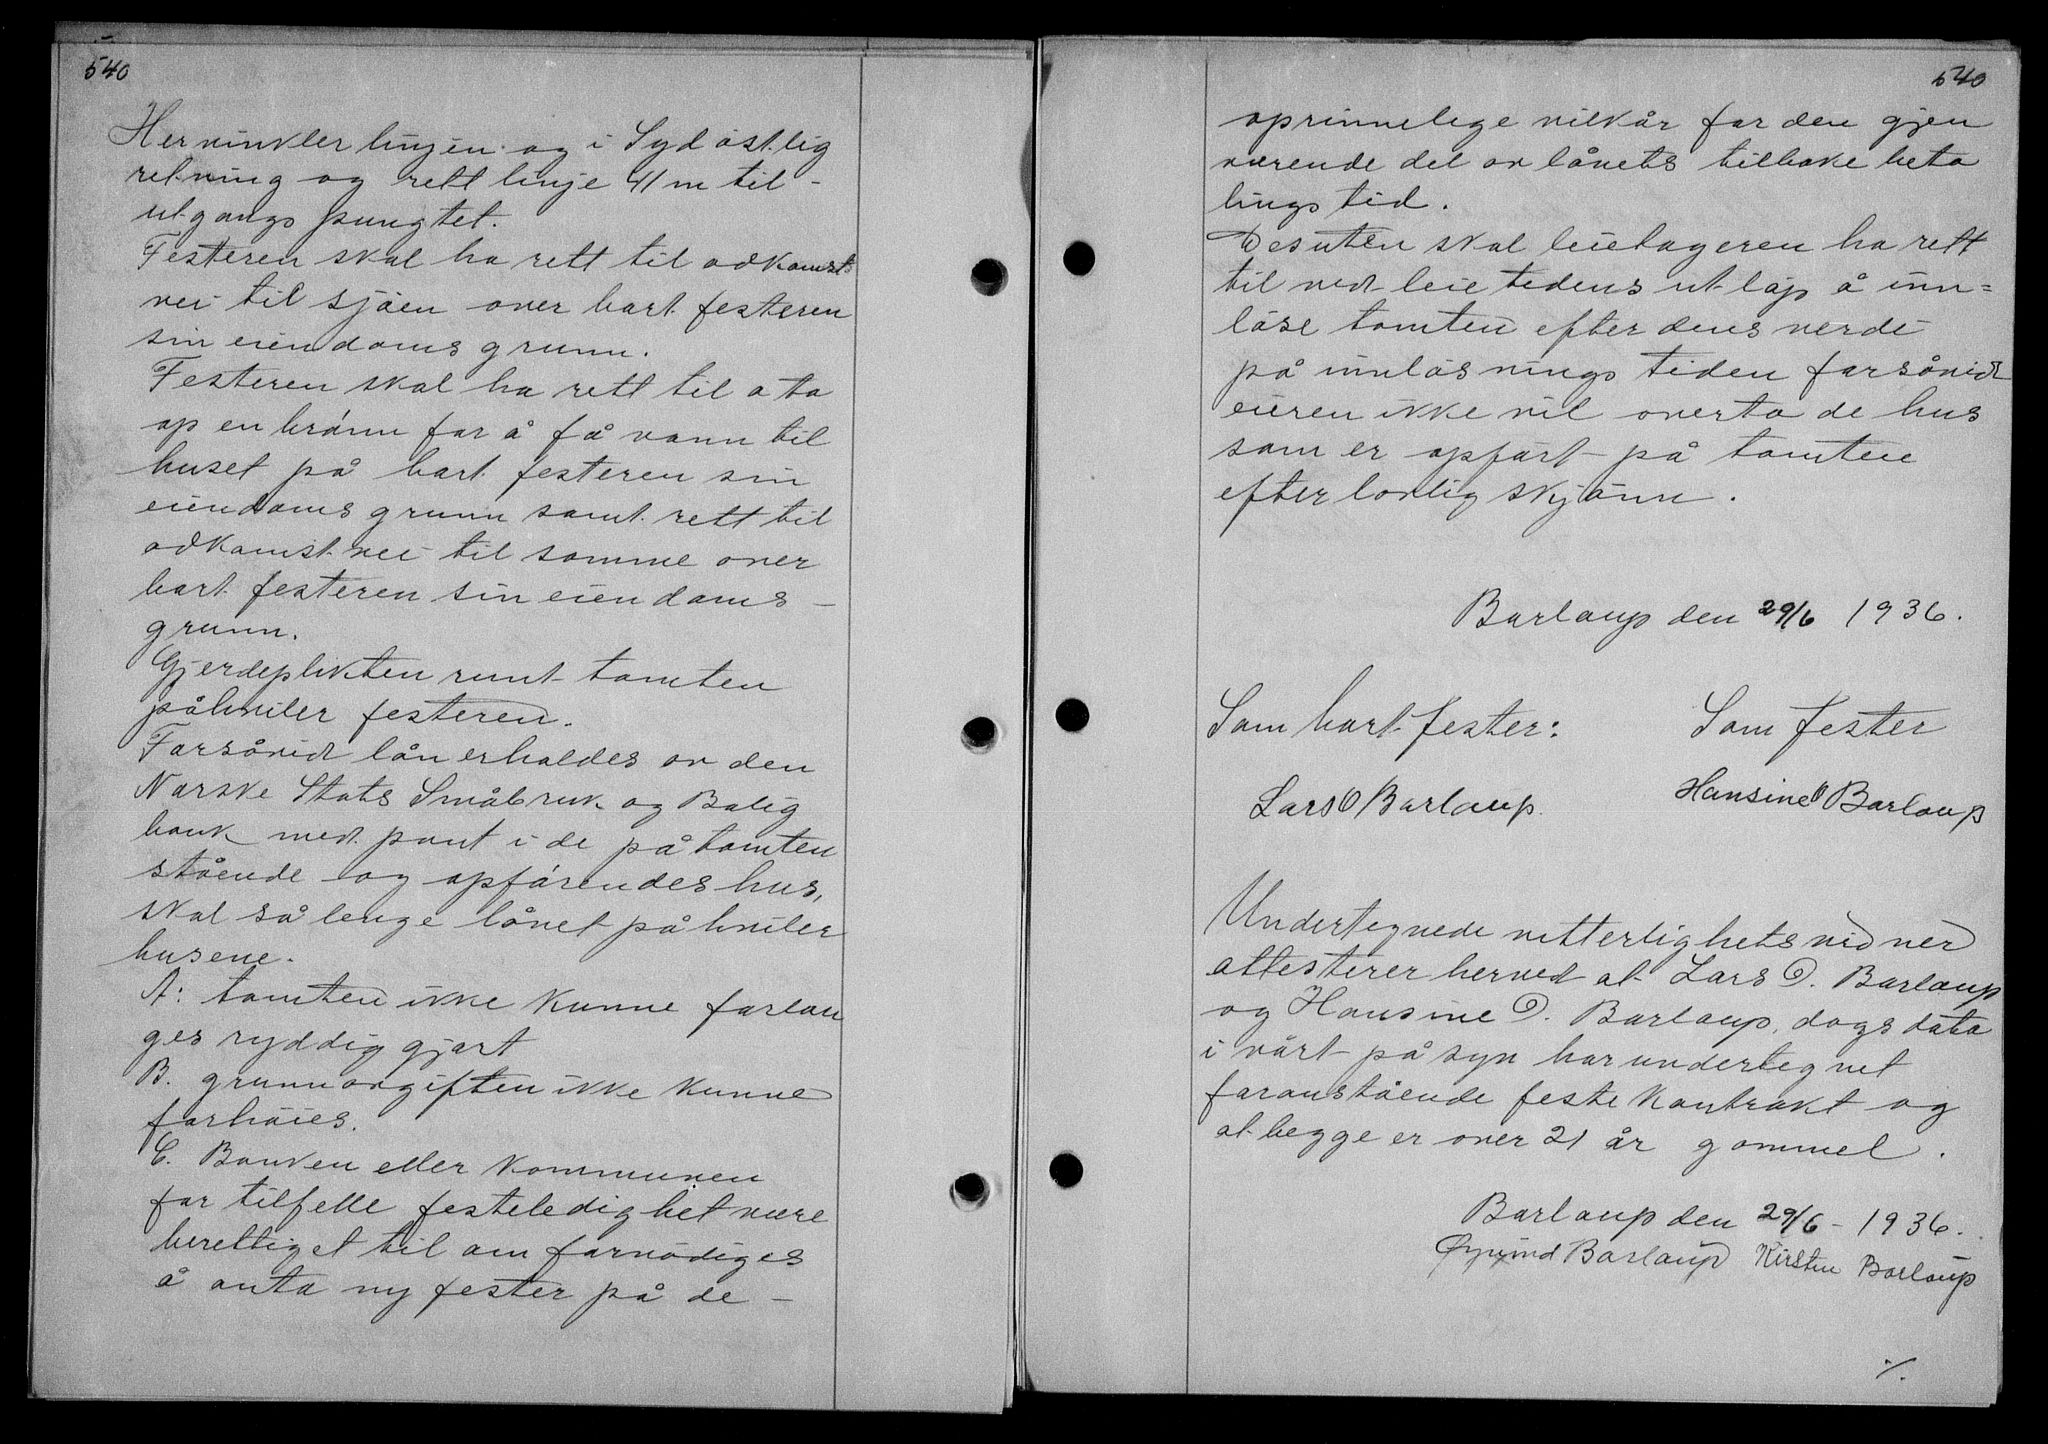 540
Her vinkler linjen og i Sydøstlig
retning og rett linje 41 m til-
utgangs pungtet.
Festeren skal ha rett til adkomst
vei til sjøen over bort festeren
sin eiendoms grunn.
Festeren skal ha rett til a ta
op en brønn for å få vann til
huset på bort festeren sin
eiendoms grunn samt rett til
adkomst vei til samme over
bort festeren sin eiendoms-
grunn.
Gjerdeplikten runt tomten
påhviler festeren.
Forsåvidt lån erholdes av den
Norske Stats Småbruk og Bolig
bank med pant i de på tomten
stående og opførendes hus,
skal så lenge lånet påhviler
husene.
A: tomten ikke kunne forlan
ges ryddiggjort
B. grunnavgiften ikke kunne
forhøies.
C. Banken eller Kommunen
for tilfelle festeledighet være
berettiget til om fornødiges
å anta ny fester på de-
540
oprinnelige vilkår for den gjen
værende del av lånets tilbake beta
lings tid.
Desuten skal leietageren ha rett
til ved leie tidens utløp å inn=
løse tomten efter dens verdi
på innløsnings tiden forsåvidt
eieren ikke vil overta de hus
som er opført på tomten
efter lovlig skjønn.
Barlaup den 29/6 1936.
Som bort fester: Som fester
Lars O Barlaup. Hansine O Barlaup
Undertegnede vitterlighetsvidner
attesterer herved at Lars O. Barlaup
og Hansine O. Barlaup, dags dato
i vårt påsyn har undertegnet
foranstående feste Kontrakt og
at begge er over 21 år gammel.
Barlaup den 29/6 - 1936.
Øyvind Barlaup Kirsten Barlaup
·/.